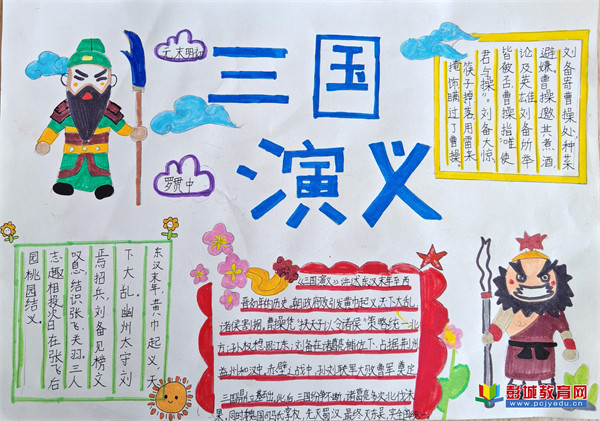 三国
演义
元末明初
罗贯中
刘备寄曹操处,种菜
避嫌。曹操邀其煮酒
论及英雄,刘备所举
皆被否,曹操指“唯使
君与操”。刘备大惊,
筷子掉落,用雷来
掩饰瞒过了曹操。
东汉末年,黄巾起义,天
下大乱。幽州太守刘
焉招兵,刘备见榜文
叹息,结识张飞、关羽,三人
志趣相投,次日在张飞后
园桃园结义。
《三国演义》讲述东汉末年至西
晋初年的历史,朝政腐败引发黄巾起义,天下大乱,
诸侯割据,曹操凭“挟天子以令诸侯”策略统一北
方;孙权想据江东;刘备在诸葛亮辅佐下,占据荆州
益州和汉中,赤壁之战中,孙刘联军大败曹军,奠定
三国鼎立基础,此后,三国纷争不断,诸葛亮多次北伐未
果,同时魏国司马氏掌权,先灭蜀汉,最终灭东吴
彭城教育网
www.pcjyedu.cn